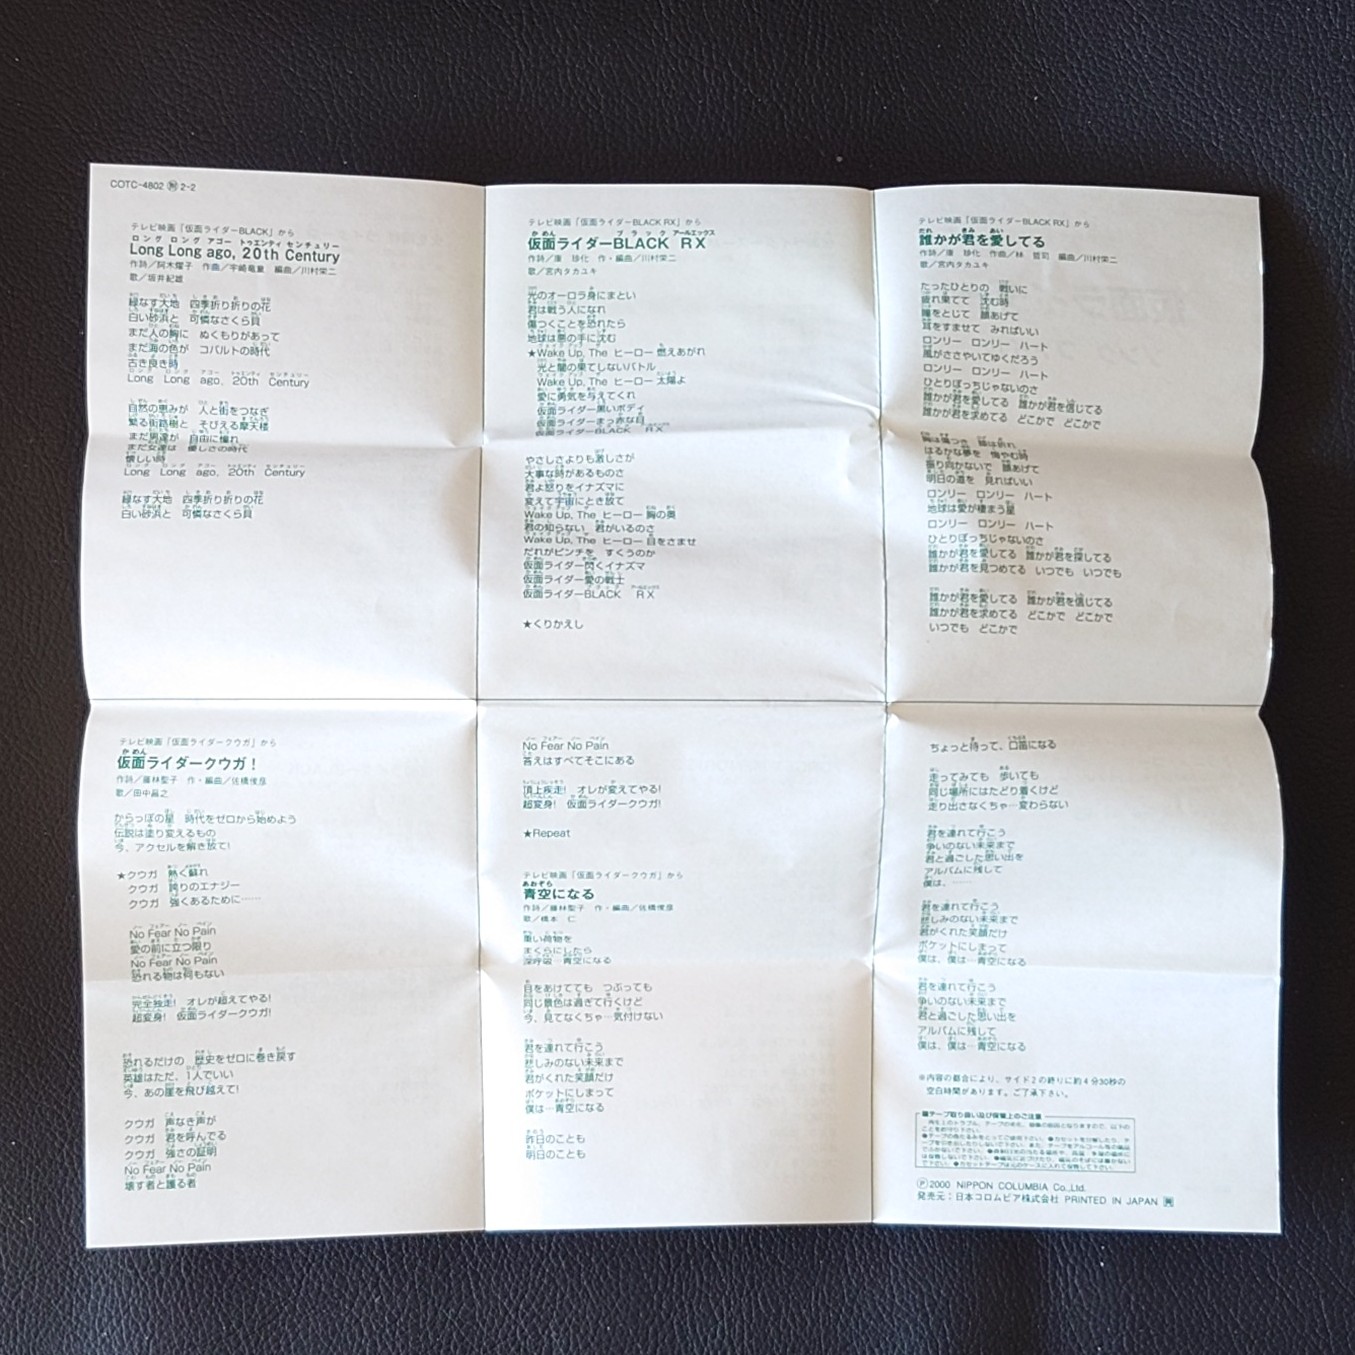 COTC-4802 2-2
テレビ映画「仮面ライダーBLACK」から
ロング ロング アゴー トゥエンティ センチュリー
Long Long ago, 20th Century
作詩/阿木燿子 作曲/宇崎竜童 編曲/川村栄二
歌/坂井紀雄
緑なす大地 四季折り折りの花
白い砂浜と 可憐なさくら貝
まだ人の胸に ぬくもりがあって
まだ海の色が コバルトの時代
古き良き時
Long Long ago, 20th Century
自然の恵みが 人と街をつなぎ
繁る街路樹と そびえる摩天楼
まだ男達が 自由に憧れ
まだ女達は 優しさの時代
懐しい時
Long Long ago, 20th Century
緑なす大地 四季折り折りの花
白い砂浜と 可憐なさくら貝
テレビ映画「仮面ライダーBLACK RX」から
かめん ブラック アールエックス
仮面ライダーBLACK RX
作詩/康 珍化 作・編曲/川村栄二
歌/宮内タカユキ
光のオーロラ身にまとい
君は戦う人になれ
傷つくことを恐れたら
地球は悪の手に沈む
★Wake Up, The ヒーロー 燃えあがれ
光と闇の果てしないバトル
Wake Up, The ヒーロー 太陽よ
愛に勇気を与えてくれ
仮面ライダー黒いボディ
仮面ライダーまっ赤な目
仮面ライダーBLACK RX
やさしさよりも激しさが
大事な時があるものさ
君よ怒りをイナズマに
変えて宇宙にとき放て
Wake Up, The ヒーロー 胸の奥
君の知らない 君がいるのさ
Wake Up, The ヒーロー 目をさませ
だれがピンチを すくうのか
仮面ライダー閃くイナズマ
仮面ライダー愛の戦士
仮面ライダーBLACK RX
★くりかえし
テレビ映画「仮面ライダーBLACK RX」から
だれ きみ あい
誰かが君を愛してる
作詩/康 珍化 作曲/林 哲司 編曲/川村栄二
歌/宮内タカユキ
たったひとりの 戦いに
疲れ果てて 沈む時
瞳をとじて 顔あげて
耳をすませて みればいい
ロンリー ロンリー ハート
風がささやいてゆくだろう
ロンリー ロンリー ハート
ひとりぼっちじゃないのさ
誰かが君を愛してる 誰かが君を信じてる
誰かが君を求めてる どこかで どこかで
胸は傷つき 翼は折れ
はるかな夢を 悔やむ時
振り向かないで 顔あげて
明日の道を 見ればいい
ロンリー ロンリー ハート
地球は愛が棲まう星
ロンリー ロンリー ハート
ひとりぼっちじゃないのさ
誰かが君を愛してる 誰かが君を探してる
誰かが君を見つめてる いつでも いつでも
誰かが君を愛してる 誰かが君を信じてる
誰かが君を求めてる どこかで どこかで
いつでも どこかで
テレビ映画「仮面ライダークウガ」から
かめん
仮面ライダークウガ!
作詩/藤林聖子 作・編曲/佐橋俊彦
歌/田中昌之
からっぽの星 時代をゼロから始めよう
伝説は塗り変えるもの
今、アクセルを解き放て!
★クウガ 熱く蘇れ
クウガ 誇りのエナジー
クウガ 強くあるために……
No Fear No Pain
愛の前に立つ限り
No Fear No Pain
恐れる物は何もない
完全独走! オレが超えてやる!
超変身! 仮面ライダークウガ!
恐れるだけの 歴史をゼロに巻き戻す
英雄はただ、1人でいい
今、あの崖を飛び越えて!
クウガ 声なき声が
クウガ 君を呼んでる
クウガ 強さの証明
No Fear No Pain
壊す者と護る者
No Fear No Pain
答えはすべてそこにある
頂上疾走! オレが変えてやる!
超変身! 仮面ライダークウガ!
★Repeat
テレビ映画「仮面ライダークウガ」から
あおぞら
青空になる
作詩/藤林聖子 作・編曲/佐橋俊彦
歌/橋本 仁
重い荷物を
まくらにしたら
深呼吸…青空になる
目をあけてても つぶっても
同じ景色は過ぎて行くけど
今、見てなくちゃ…気付けない
君を連れて行こう
悲しみのない未来まで
君がくれた笑顔だけ
ポケットにしまって
僕は…青空になる
昨日のことも
明日のことも
ちょっと待って、口笛になる
走ってみても 歩いても
同じ場所にはたどり着くけど
走り出さなくちゃ…変わらない
君を連れて行こう
争いのない未来まで
君と過ごした思い出を
アルバムに残して
僕は、……
君を連れて行こう
悲しみのない未来まで
君がくれた笑顔だけ
ポケットにしまって
僕は、僕は…青空になる
君を連れて行こう
争いのない未来まで
君と過ごした思い出を
アルバムに残して
僕は、僕は…青空になる
※内容の都合により、サイド2の終りに約4分30秒の
空白時間があります。ご了承下さい。
■テープ取り扱い及び保管上のご注意
Ⓟ2000 NIPPON COLUMBIA Co.,Ltd.
発売元:日本コロムビア株式会社 PRINTED IN JAPAN